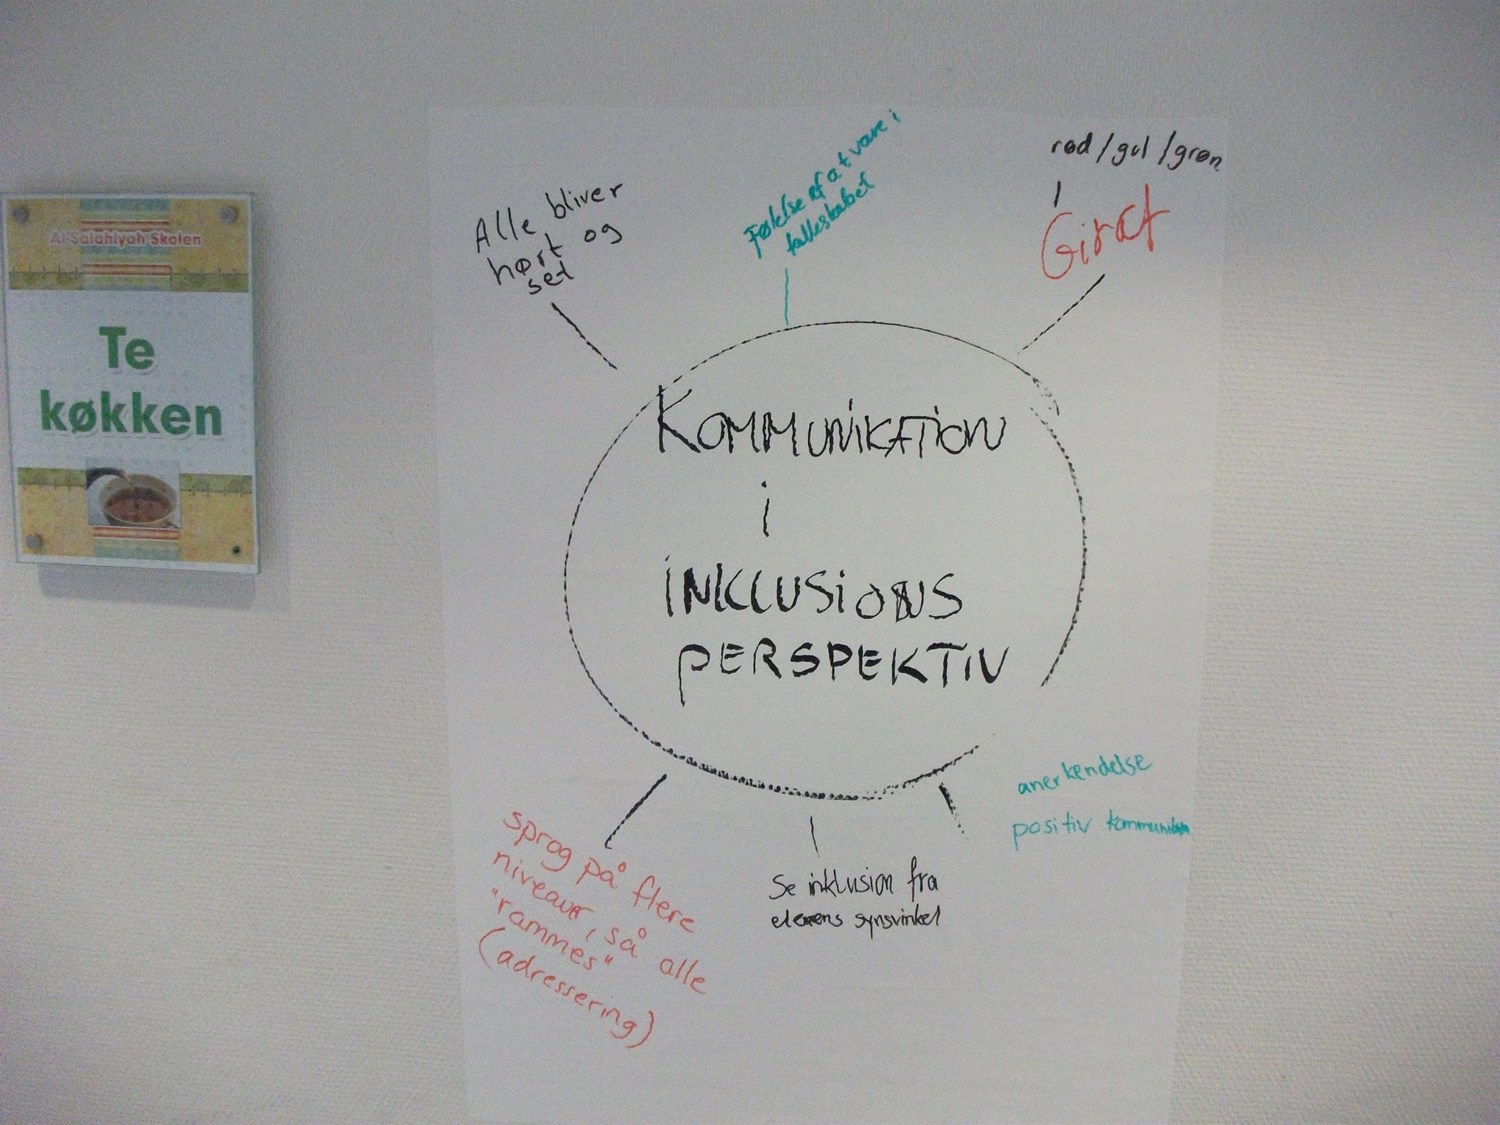 Al-Salahiyah Skolen
Te
køkken
Alle bliver
hørt og
set
Følelse af at være i
fællesskabet
rød/gul/grøn
Giraf
KOMMUNIKATION
i
INKLUSIONS
PERSPEKTIV
anerkendelse
positiv kommunikation
Se inklusion fra
elevens synsvinkel
sprog på flere
niveauer, så alle
"rammes"
(adressering)